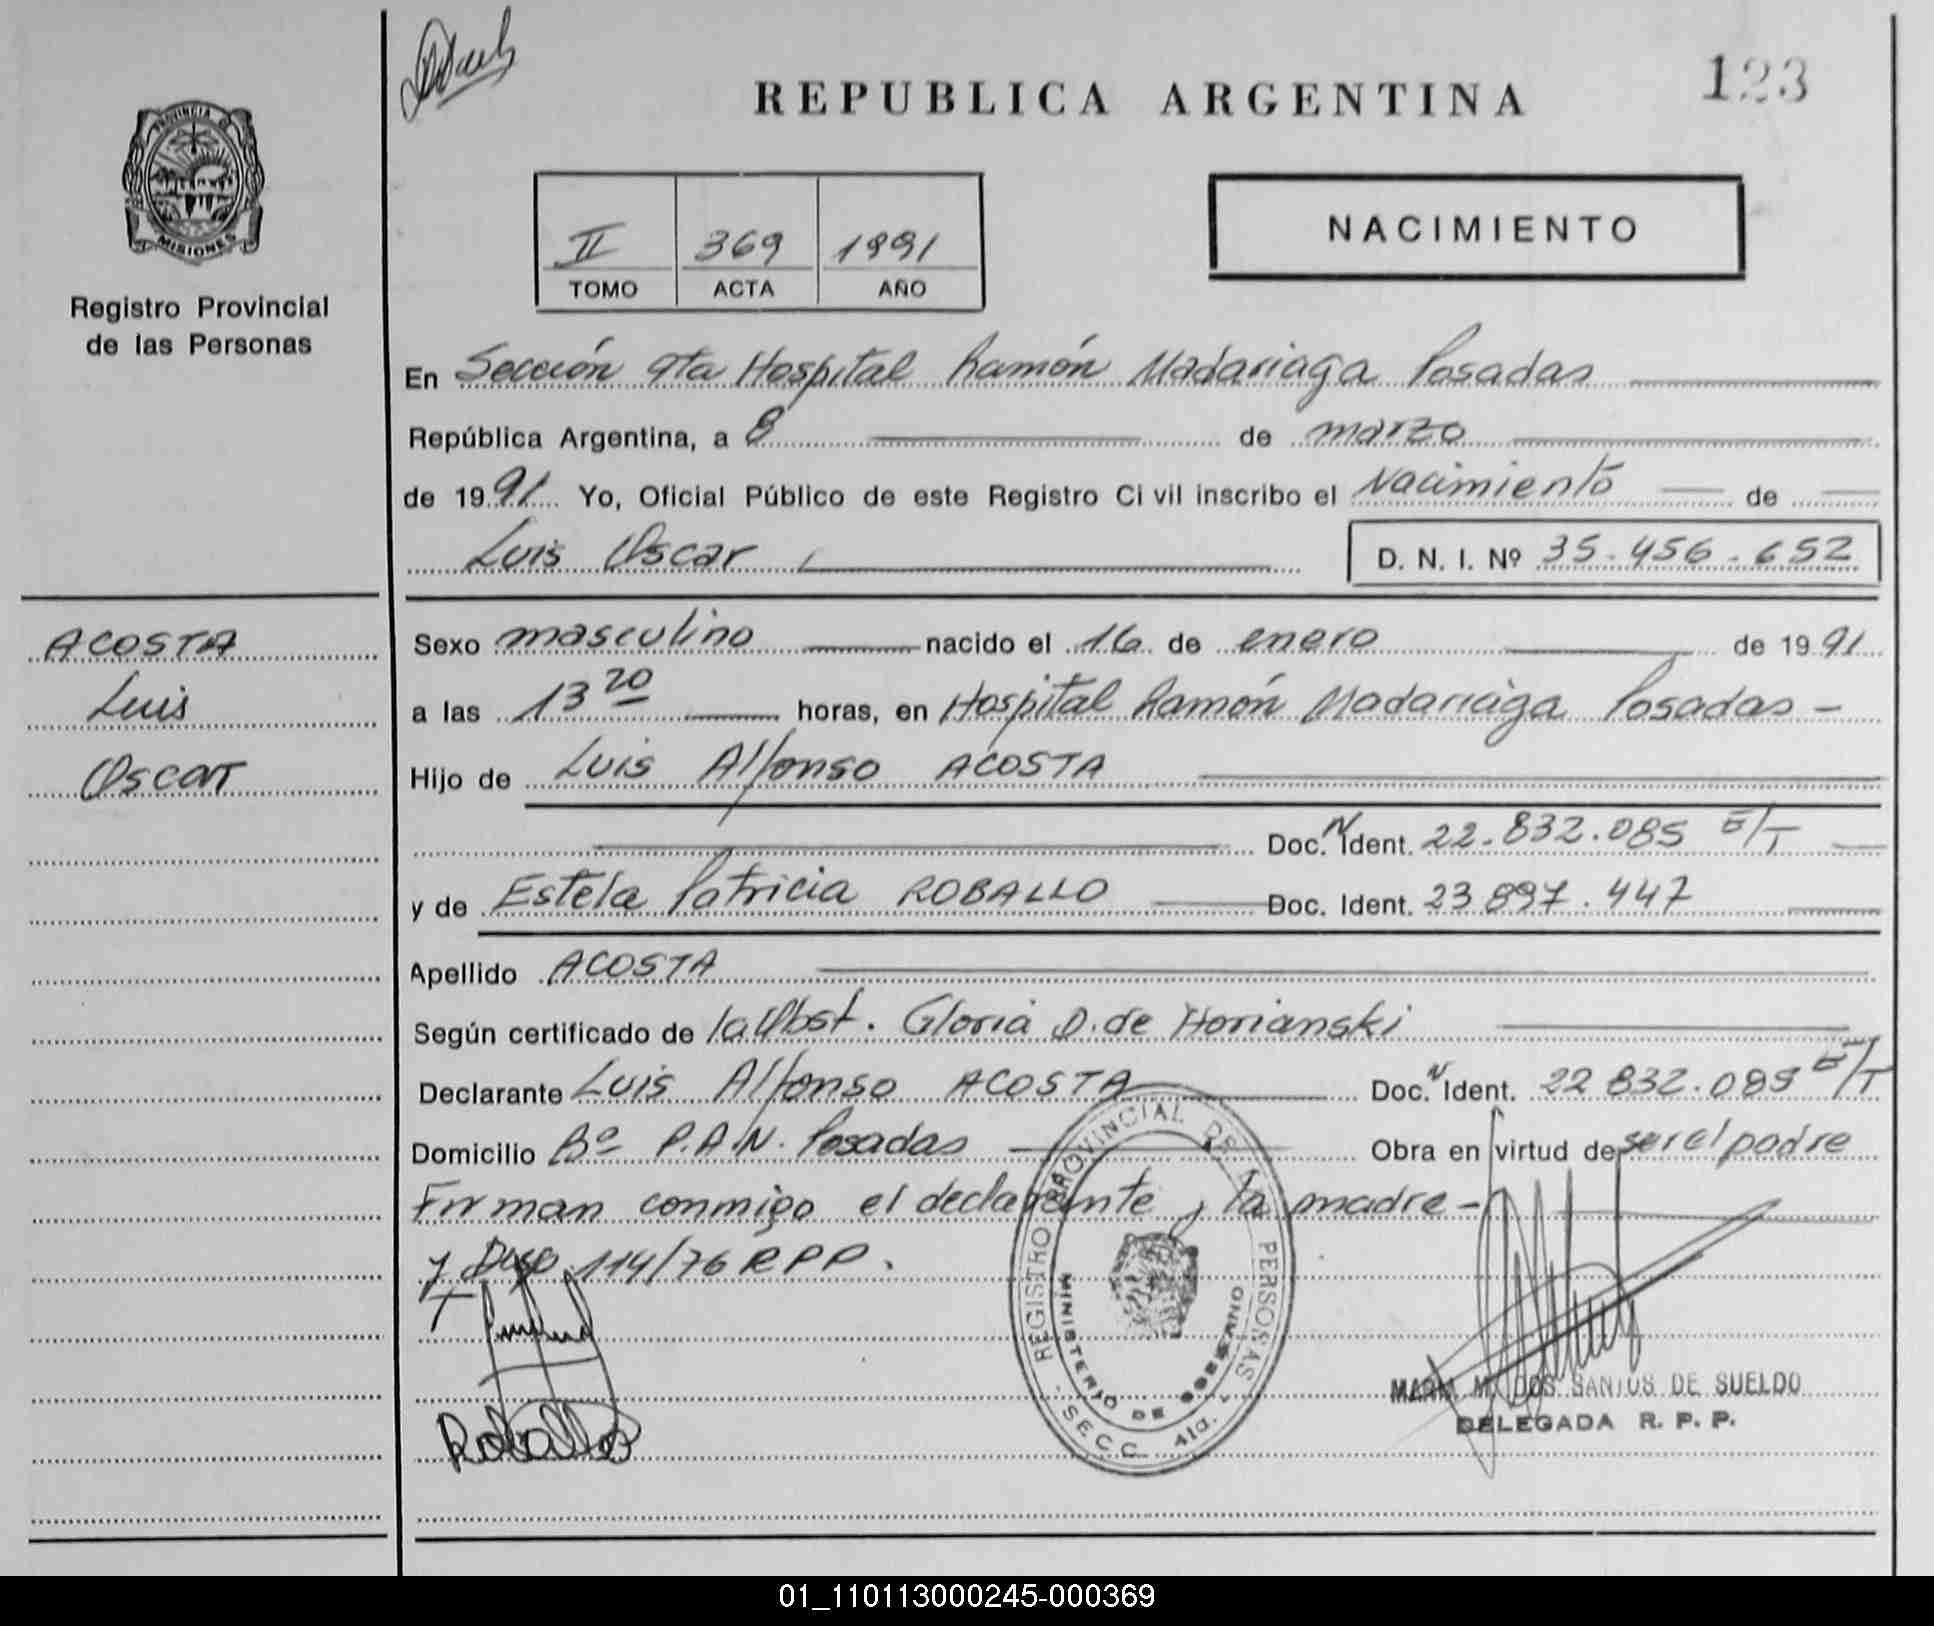 REPUBLICA ARGENTINA
123
PROVINCIA DE
MISIONES
Registro Provincial
de las Personas
II 369 1991
TOMO ACTA AÑO
NACIMIENTO
En Sección 4ta Hospital Ramón Madariaga Posadas
República Argentina, a 8 de marzo
de 1991 Yo, Oficial Público de este Registro Civil inscribo el Nacimiento de
Luis Oscar D. N. I. Nº 35.456.652
ACOSTA
Luis
Oscar
Sexo masculino nacido el 16 de enero de 1991
a las 13 20 horas, en Hospital Ramón Madariaga Posadas -
Hijo de Luis Alfonso ACOSTA
Doc. N Ident. 22.832.085 E/T
y de Estela Patricia ROBALLO Doc. Ident. 23.897.447
Apellido ACOSTA
Según certificado de la Obst. Gloria D. de Horianski
Declarante Luis Alfonso ACOSTA Doc. N Ident. 22.832.085 E/T
Domicilio Bº P.A.N. Posadas Obra en virtud de ser el padre
Firman conmigo el declarante y la madre -
y Disp 114/76 R P P.
REGISTRO PROVINCIAL DE LAS PERSONAS
MINISTERIO DE GOBIERNO
SECC. 4ta.
Roballo
MARIA M. DOS SANTOS DE SUELDO
DELEGADA R. P. P.
01_110113000245-000369